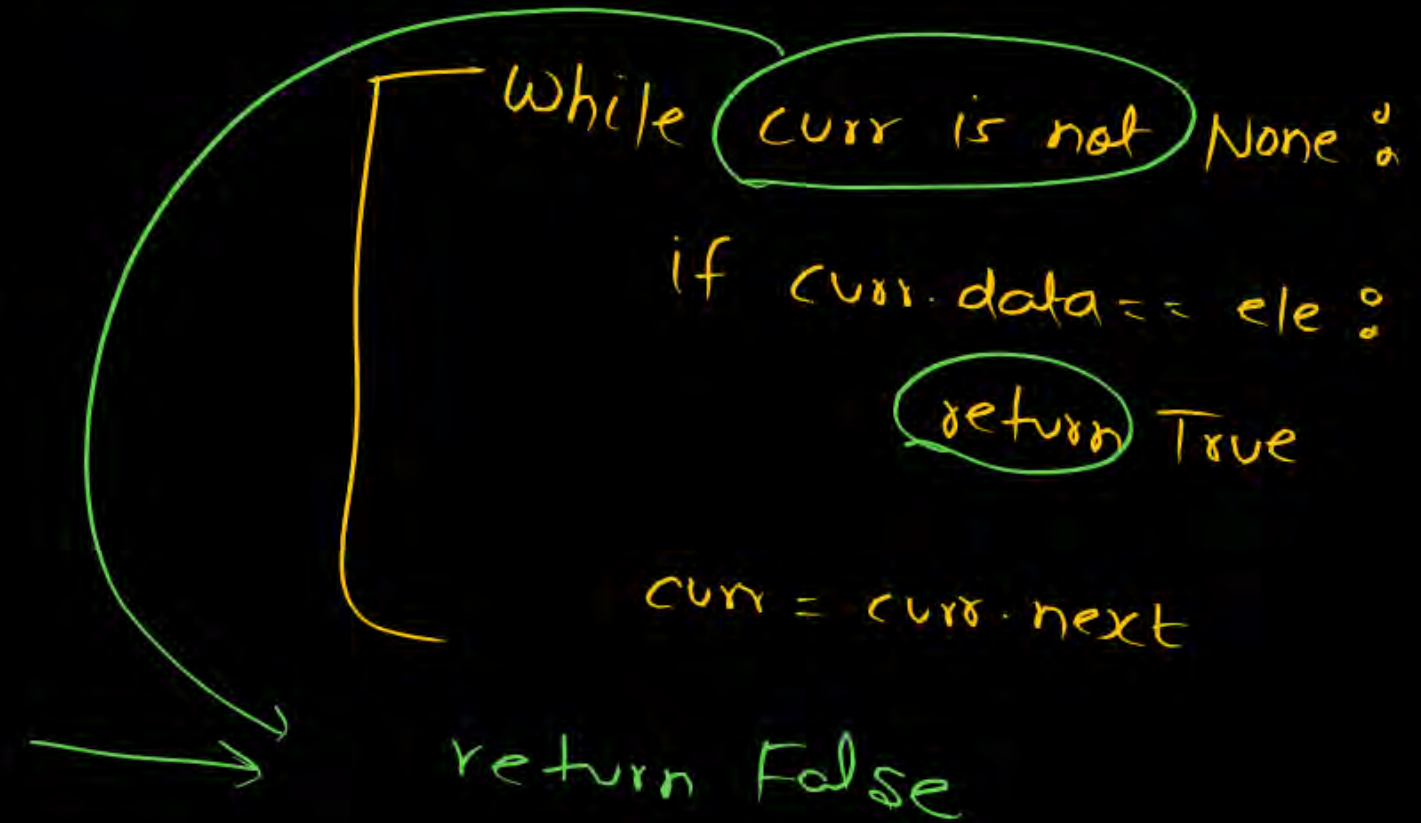 While curr is not None :
if curr.data == ele :
return True
curr = curr.next
return False